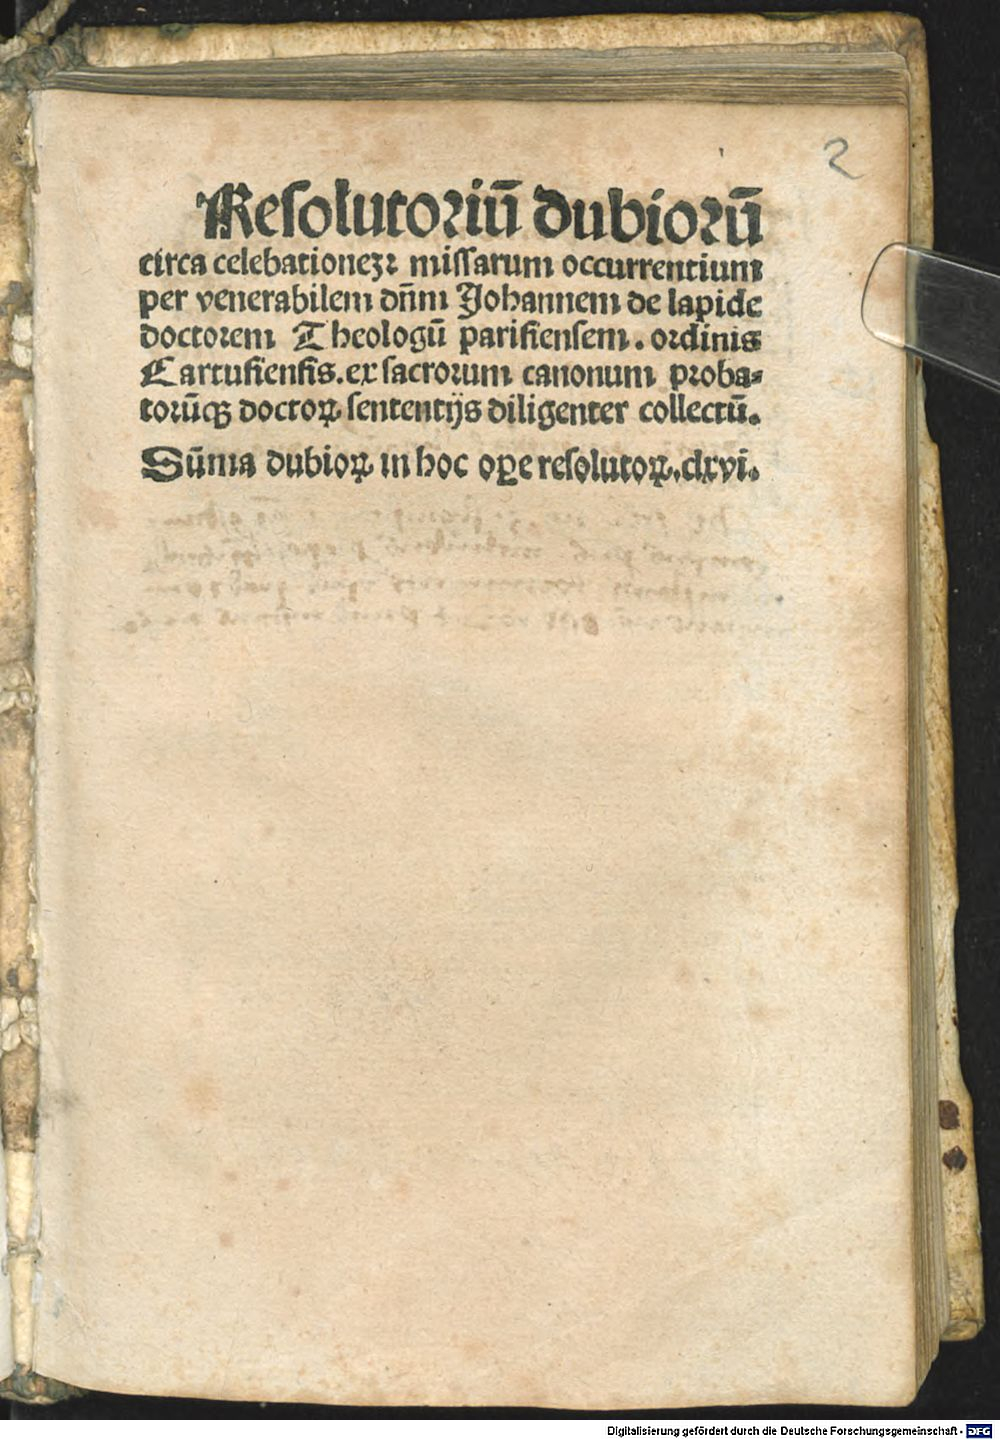 2
Resolutoriū dubiorū
circa celebationeꝫ missarum occurrentium
per venerabilem dn̄m Johannem de lapide
doctorem Theologū parisiensem. ordinis
Cartusiensis. ex sacrorum canonum proba-
torūqꝫ doctoꝝ sententijs diligenter collectū.
Sūma dubioꝝ in hoc oꝑe resolutoꝝ. clxvi.
Digitalisierung gefördert durch die Deutsche Forschungsgemeinschaft - DFG